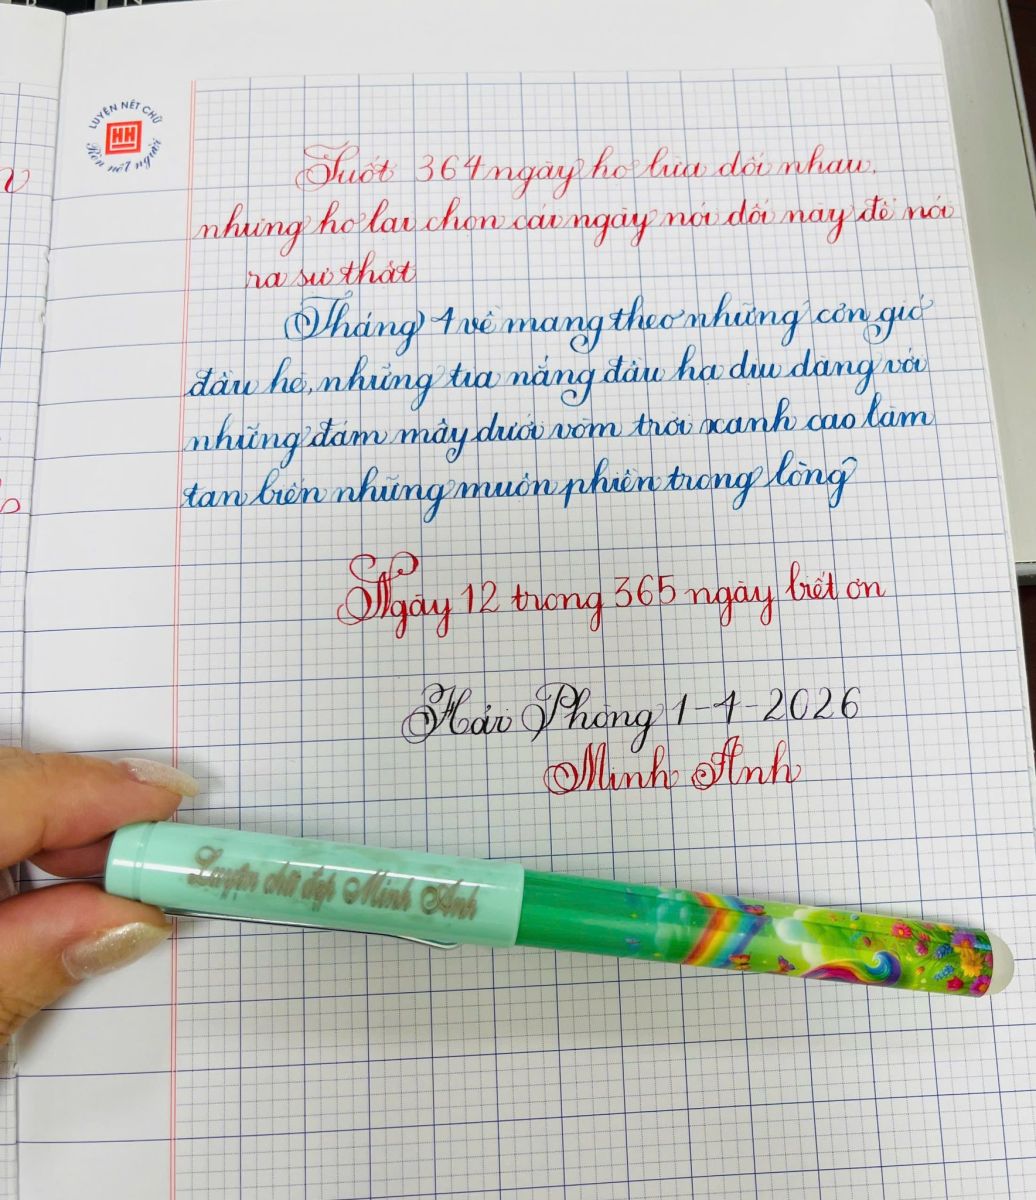 LUYỆN NÉT CHỮ
HH
Rèn nết người
Suốt 364 ngày họ lừa dối nhau,
nhưng họ lại chọn cái ngày nói dối này để nói
ra sự thật
Tháng 4 về mang theo những cơn gió
đầu hè, những tia nắng đầu hạ dịu dàng với
những đám mây dưới vòm trời xanh cao làm
tan biến những muộn phiền trong lòng
Ngày 12 trong 365 ngày biết ơn
Hải Phòng 1-4-2026
Minh Anh
Luyện chữ đẹp Minh Anh